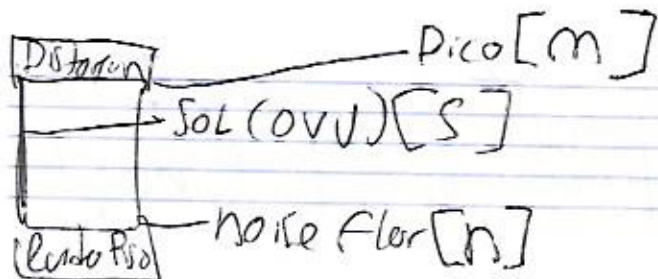 Distorsion
Pico [m]
SOL (OVU) [S]
noise flor [n]
Ruido Piso